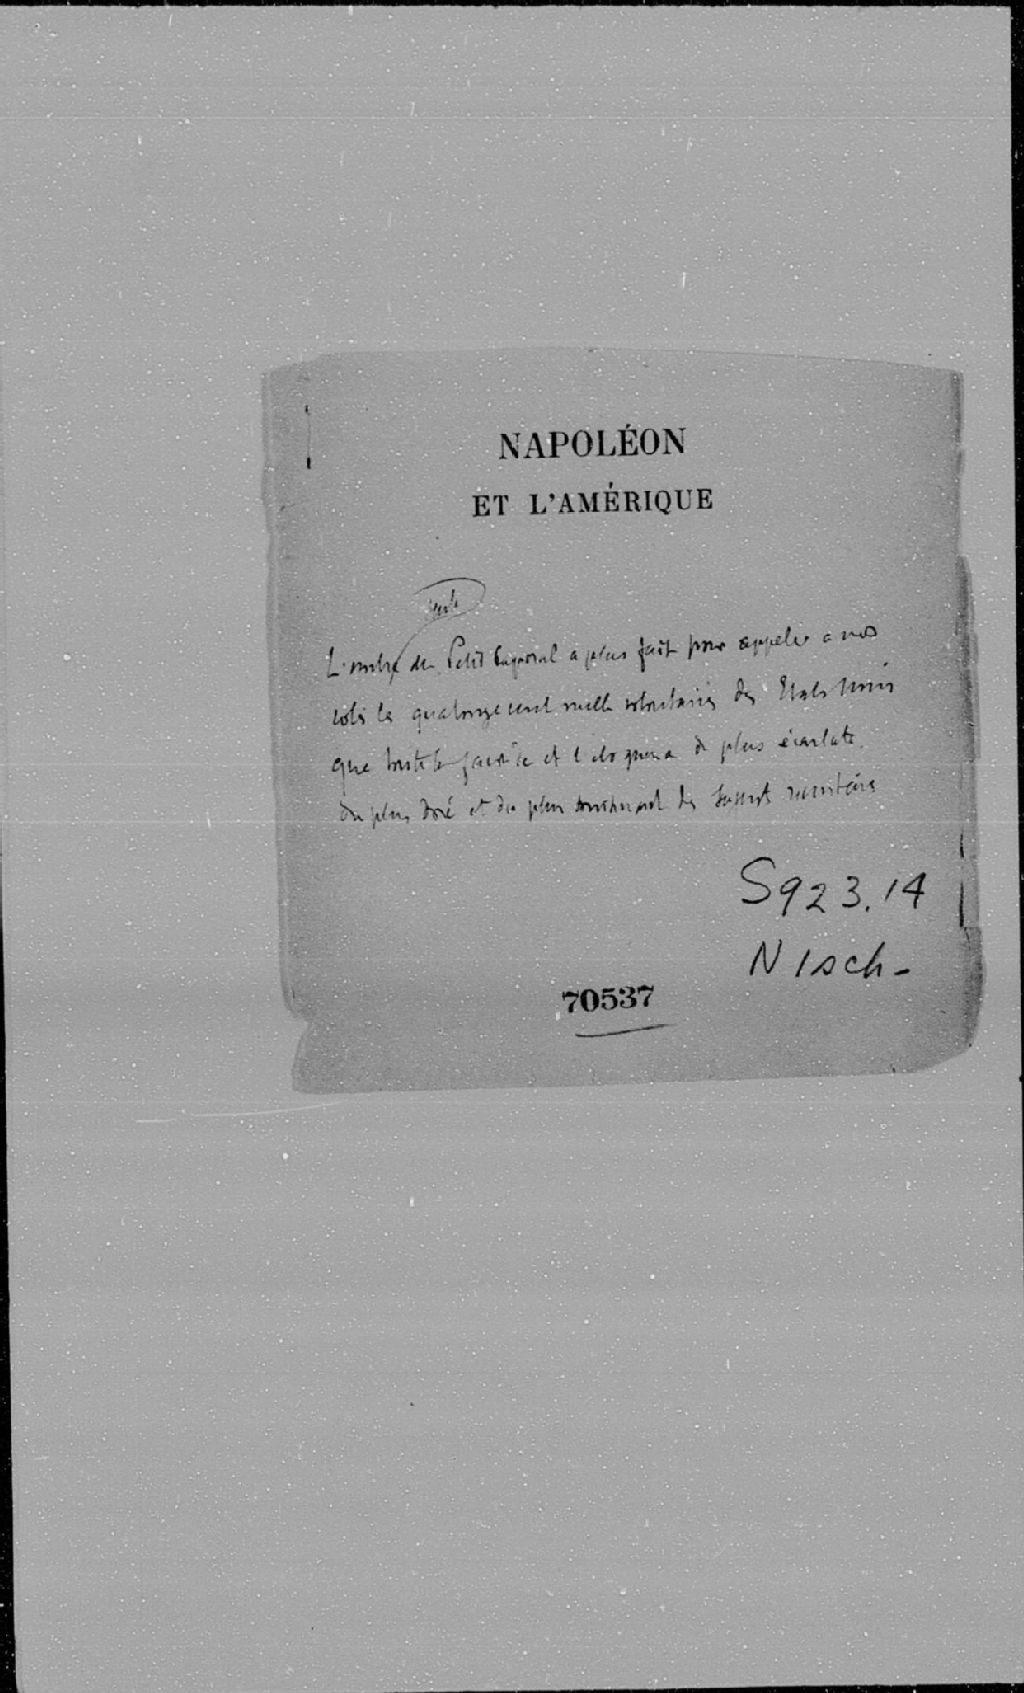 NAPOLÉON
ET L'AMÉRIQUE
seule
L'ombre du Petit Caporal a plus fait pour appeler a nos
cotés les quatorze cent mille volontaires des Etats Unis
que toute la et l'eloquence du plus écarlate,
du plus doré et du plus des
S923.14
N1sch-
70537